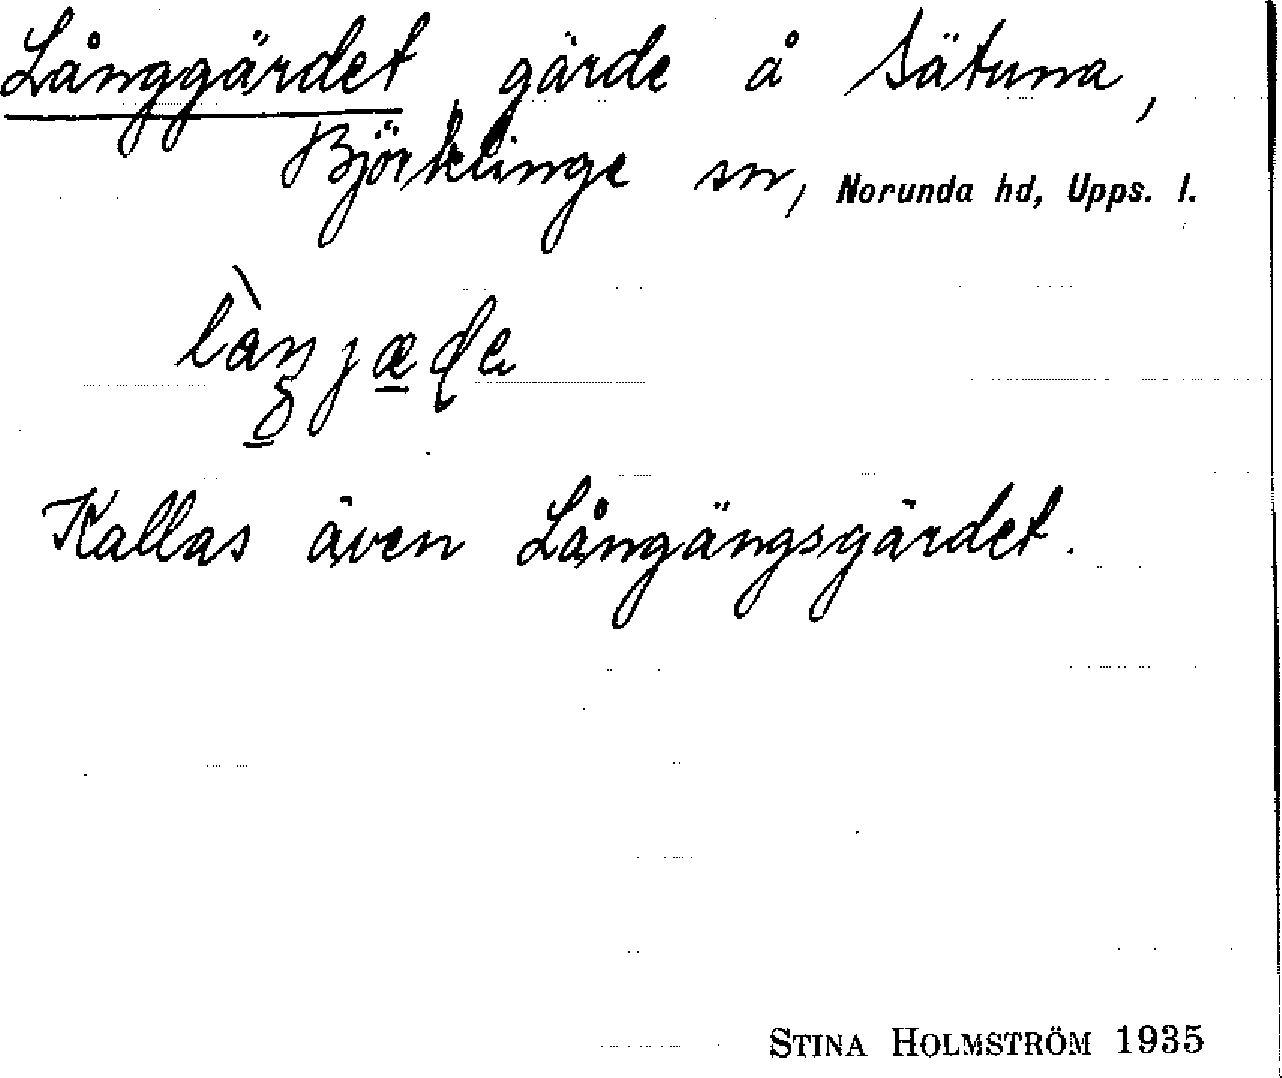 Långgärdet gärde å Sätuna,
Björklinge sn, Norunda hd, Upps. l.
Kallas även Långängsgärdet.
STINA HOLMSTRÖM 1935